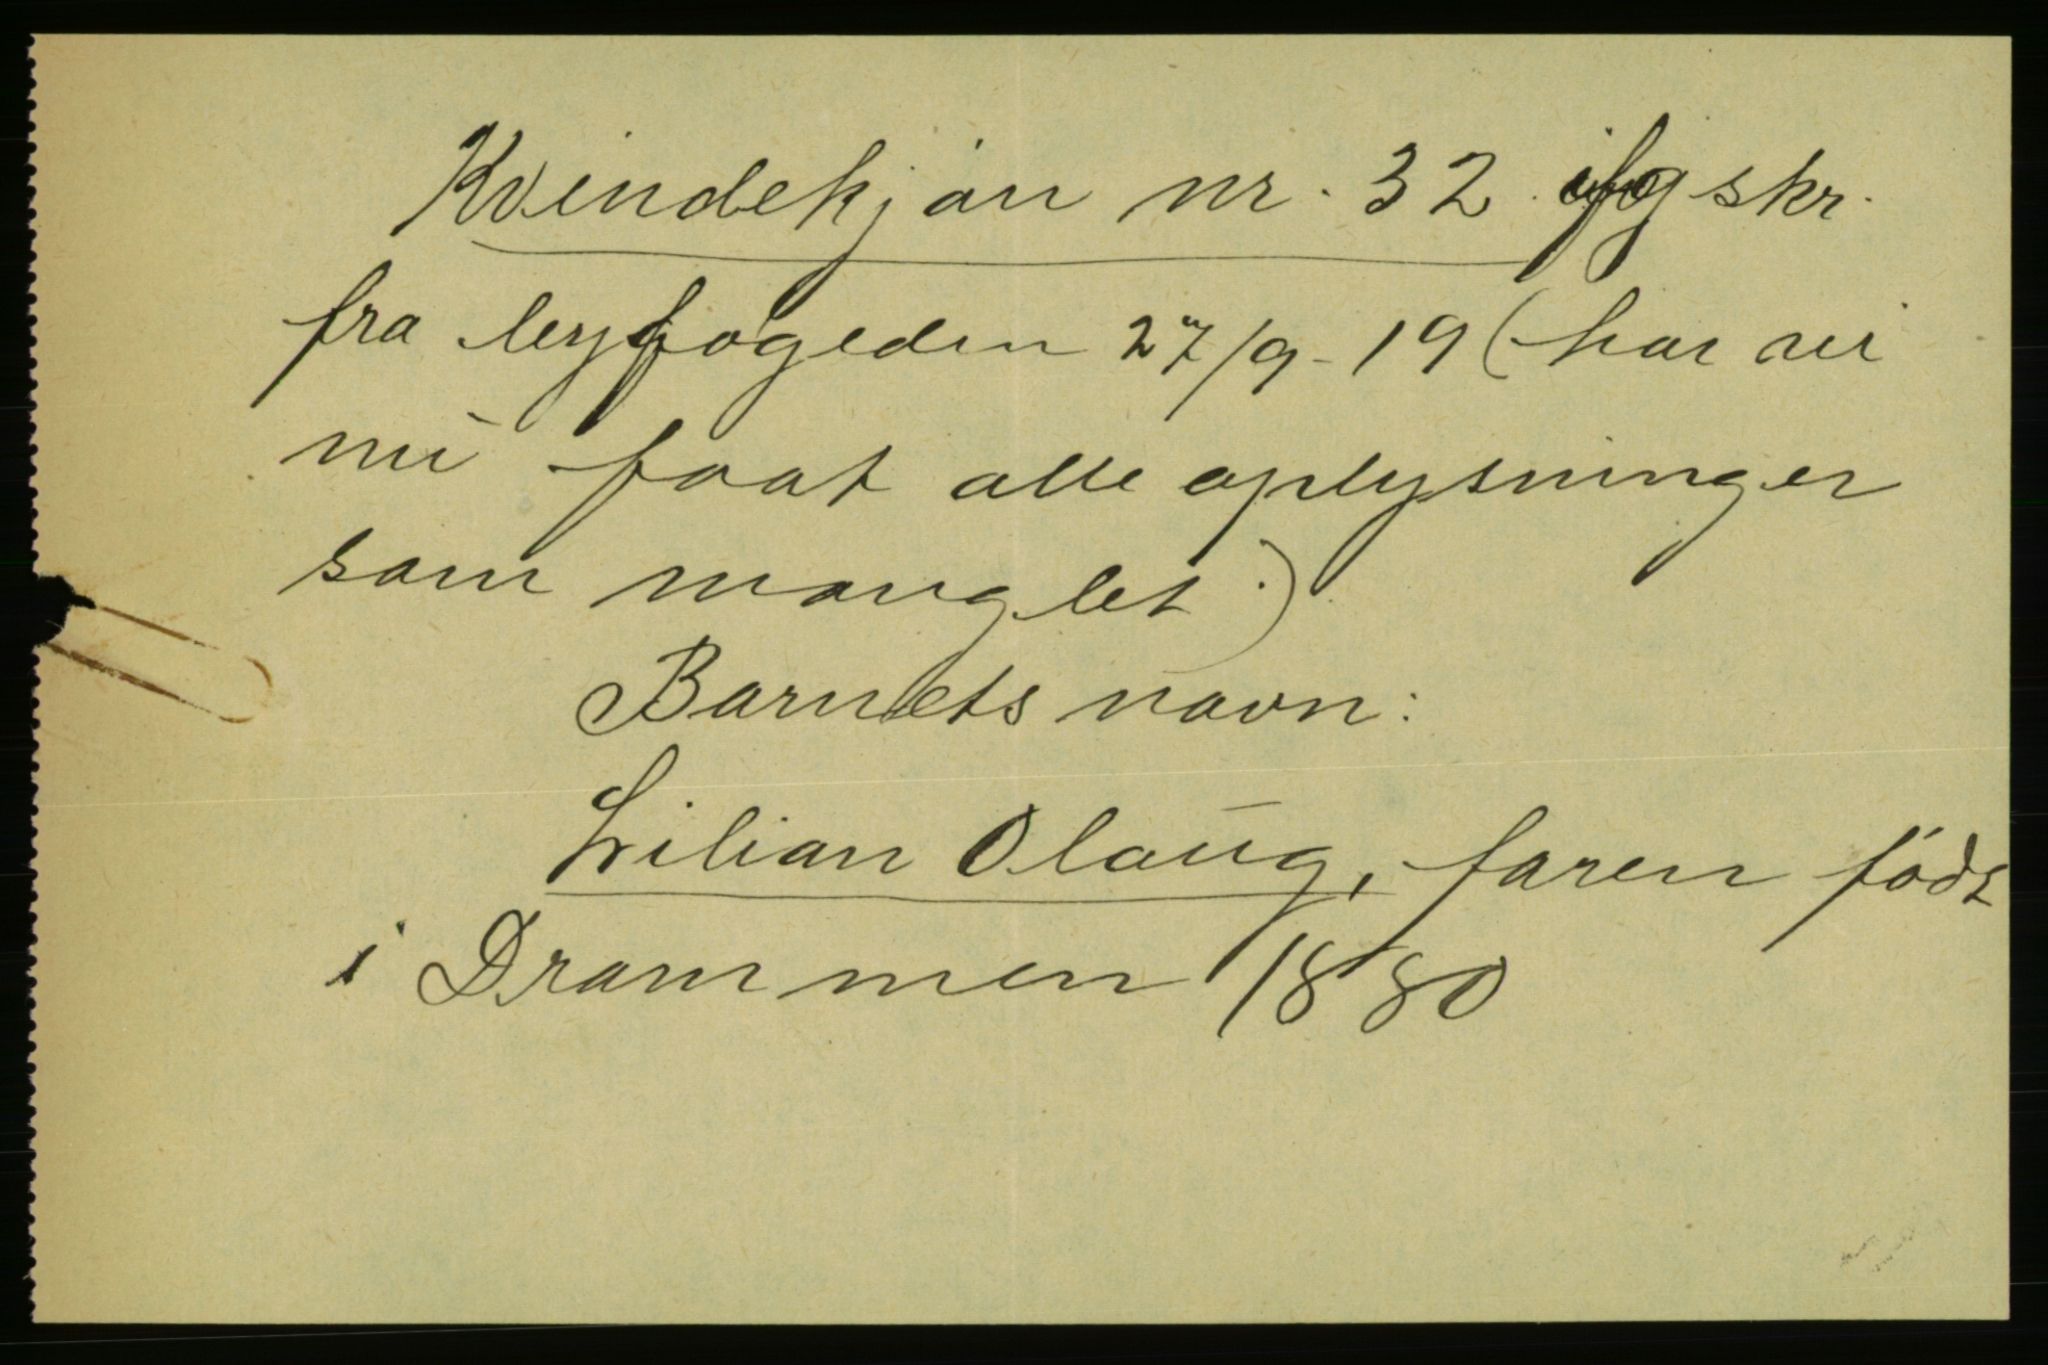 Kvindekjøn nr. 32 iføg skr.
fra byfogeden 27/9-19 (har vi
nu faat alle oplysninger
som manglet.)
Barnets navn:
Lilian Olaug, faren født
i Drammen 1880